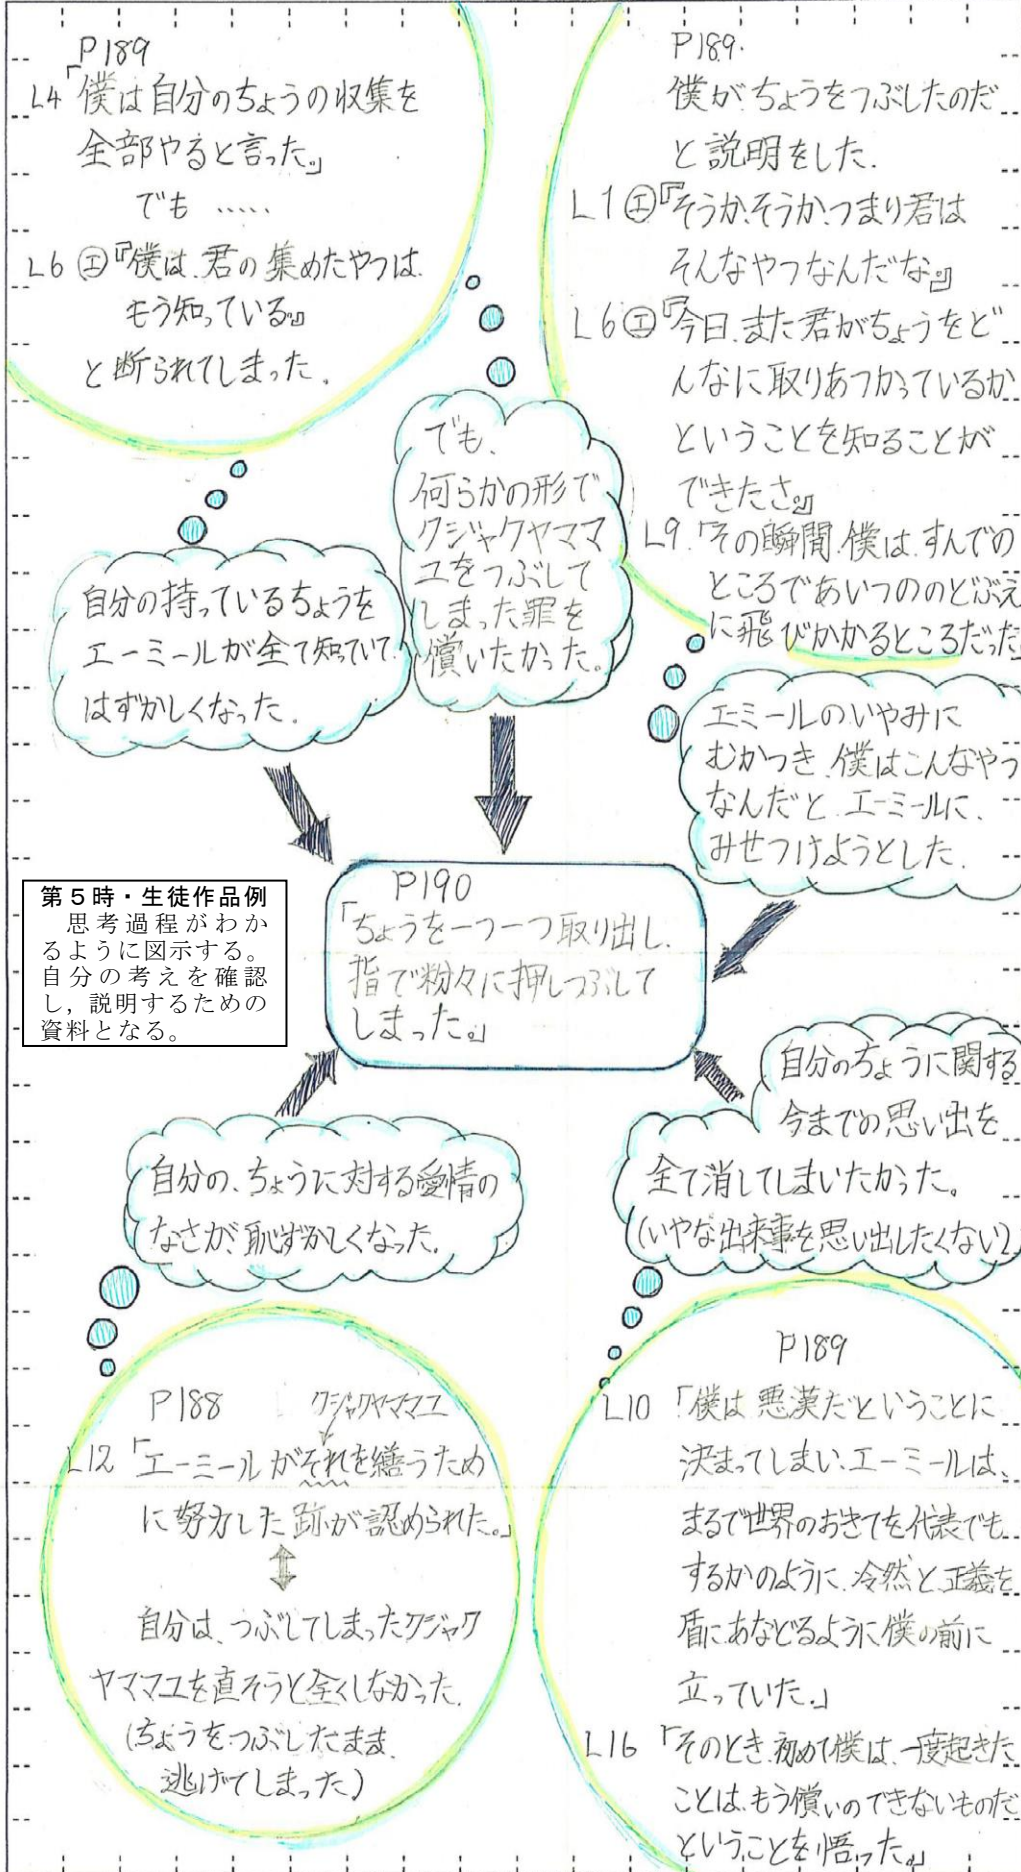 P189
L4「僕は自分のちょうの収集を
全部やると言った。」
でも ……
L6 エ『僕は、君の集めたやつは
もう知っている。』
と断られてしまった。
P189.
僕が、ちょうをつぶしたのだ
と説明をした.
L1 エ『そうか、そうか、つまり君は
そんなやつなんだな。』
L6 エ『今日、また君がちょうをど
んなに取りあつかっているか、
ということを知ることが
できたさ。』
L9.「その瞬間、僕は、すんでの
ところであいつののどぶえ
に飛びかかるところだった」
でも、
何らかの形で
クジャクヤママ
ユをつぶして
しまった罪を
償いたかった。
自分の持っているちょうを
エーミールが全て知っていて、
はずかしくなった。
エーミールのいやみに
むかつき、僕はこんなやつ
なんだと、エーミールに、
みせつけようとした.
P190
「ちょうを一つ一つ取り出し、
指で粉々に押しつぶして
しまった。」
第5時・生徒作品例
思考過程がわか
るように図示する。
自分の考えを確認
し,説明するための
資料となる。
自分の、ちょうに対する愛情の
なさが、恥ずかしくなった。
自分のちょうに関する
今までの思い出を
全て消してしまいたかった。
(いやな出来事を思い出したくない)
P188
クジャクヤママユ
L12「エーミールがそれを繕うため
に努力した跡が認められた。」
自分は、つぶしてしまったクジャク
ヤママユを直そうと全くしなかった.
(ちょうをつぶしたまま、
逃げてしまった)
P189
L10「僕は悪漢だということに
決まってしまい、エーミールは、
まるで世界のおきてを代表でも
するかのように、冷然と、正義を
盾に、あなどるように僕の前に
立っていた。」
L16「そのとき、初めて僕は、一度起きた
ことは、もう償いのできないものだ
ということを悟った。」